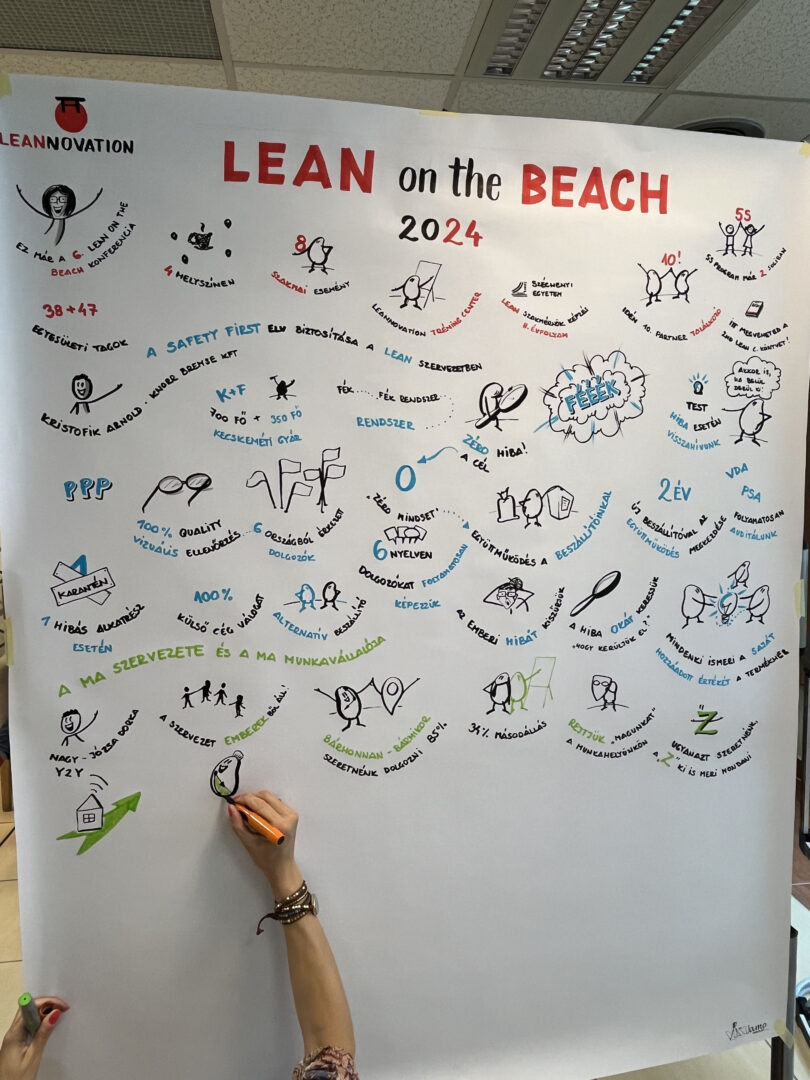 LEANNOVATION
LEAN on the BEACH
2024
EZ MÁR A 6. LEAN ON THE
BEACH KONFERENCIA
4 HELYSZÍNEN
8
SZAKMAI ESEMÉNY
LEANNOVATION TRÉNING CENTER
SZÉCHENYI
EGYETEM
LEAN SZAKMÉRNÖK KÉPZÉS
II. ÉVFOLYAM
10!
IDÉN 10. PARTNER TALÁLKOZÓ
5S
5S PROGRAM MÁR 2 SULIBAN
ITT MEGVEHETED A
2ND LEAN C. KÖNYVET!
38+47
EGYESÜLETI TAGOK
A SAFETY FIRST ELV BIZTOSÍTÁSA A LEAN SZERVEZETBEN
KRISTOFIK ARNOLD - KNORR BREMSE KFT
K+F
700 FŐ + 350 FŐ
KECSKEMÉTI GYÁR
FÉK FÉK RENDSZER
RENDSZER
ZÉRÓ HIBA!
A CÉL
FÉÉÉK
TEST
HIBA ESETÉN
VISSZAHÍVUNK
AKKOR IS,
HA BELÜL
DERÜL KI!
PPP
100% QUALITY
VIZUÁLIS ELLENŐRZÉS
6 ORSZÁGBÓL ÉRKEZETT
DOLGOZÓK
0
"ZÉRÓ MINDSET"
6 NYELVEN
DOLGOZÓKAT FOLYAMATOSAN
KÉPEZZÜK
EGYÜTTMŰKÖDÉS A BESZÁLLÍTÓINKKAL
2 ÉV
ÚJ BESZÁLLÍTÓVAL AZ
EGYÜTTMŰKÖDÉS MEGKEZDÉSE
VDA
PSA
FOLYAMATOSAN
AUDITÁLUNK
1
KARANTÉN
1 HIBÁS ALKATRÉSZ
ESETÉN
100%
KÜLSŐ CÉG VÁLOGAT
ALTERNATÍV BESZÁLLÍTÓ
AZ EMBERI HIBÁT KISZŰRJÜK
A HIBA OKÁT KERESSÜK
"HOGY KERÜLJÜK EL?"
MINDENKI ISMERI A SAJÁT
HOZZÁADOTT ÉRTÉKÉT A TERMÉKHEZ
A MA SZERVEZETE ÉS A MA MUNKAVÁLLALÓJA
NAGY-JÓZSA DORKA
Y2Y
A SZERVEZET EMBEREKBŐL ÁLL!
BÁRHONNAN - BÁRMIKOR
SZERETNÉNK DOLGOZNI 85%
34% MÁSODÁLLÁS
REJTJÜK "MAGUNKAT"
A MUNKAHELYÜNKÖN
"Z"
UGYANAZT SZERETNÉNK,
A "Z" KI IS MERI MONDANI